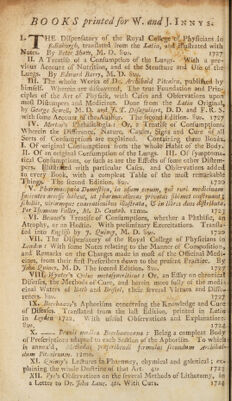 BOOKS printed for W. and J. INNYS.
I. THE Dispensatory of the Royal College of Physicians in
Edinburgh, translated from the Latin, and illustrated with
Notes. By Peter Shaw, M. D. 8vo. 1727
II. A Treatise of a Consumption of the Lungs. With a pre-
vious Account of Nutrition, and of the Structure and Use of the
Lungs. By Edward Barry, M. D. 8vo.
III. The whole Works of Dr. Archibald Pitcairn, published by
himself. Wherein are discovered, The true Foundation and Prin-
ciples of the Art of Physick, with Cases and Observations upon
most Distempers and Medicines. Done from the Latin Original,
by George Sewell, M. D. and J. T. Desaguliers, D. D. and F. R. S.
with some Account of the Author. The second Edition. 8vo. 1727
IV. Morton's Phthisiologia: Or, a Treatise of Consumptions.
Wherein the Difference, Nature, Causes, Signs and Cure of all
Sorts of Consumptions are explained. Containing three Books.
I. Of original Consumptions from the whole Habit of the Body.
II. Of an original Consumption of the Lungs. III. Of symptoma-
tical Consumptions, or such as are the Effects of some other Distem-
pers. Illustrated with particular Cases, and Observations added
to every Book, with a compleat Table of the most remarkable
Things. The second Edition. 8vo. 1720
V. Pharmacopœia
Per Thomam Fuller, M. D. Cantab. 12mo.
VI. Benet's Treatise of Consumptions, whether a Phthisic, an
Atrophy, or an Hectic. With preliminary Exercitations. Transla-
ted into English by J. Quincy, M. D. 8vo. 1720
VII. The Dispensatory of the Royal College of Physicians in
London: With some Notes relating to the Manner of Composition,
and Remarks on the Changes made in most of the Official Medi-
cines, from their first Prescribers down to the present Practice. By
John Quincy, M. D. The second Edition. 8vo. 1727
VIII. Or, an Essay on chronick
Diseases, the Methods of Cure, and herein more fully of the medi-
cinal Waters of Bath and Bristol, their several Virtues and Diffe-
rences. 8vo. 1725
IX. Boerhaave's Aphorisms concerning the Knowledge and Cure
of Diseases. Translated from the last Edition, printed in Latin
at Leyden 1722. With useful Observations and Explanations.
8vo. 1724
X. Praxis medica Boerhaaveana: Being a compleat Body
of Prescriptions adapted to each Section of the Aphorisms. To which
12mo.
XI. Quincy's Lectures in Pharmacy, chymical and galenical; ex-
plaining the whole Doctrine of that Art. 4to 1723
XII. Pye's Observations on the several Methods of Lithotomy, in
a Letter to Dr. John Lane. 4to. With Cuts. 1724